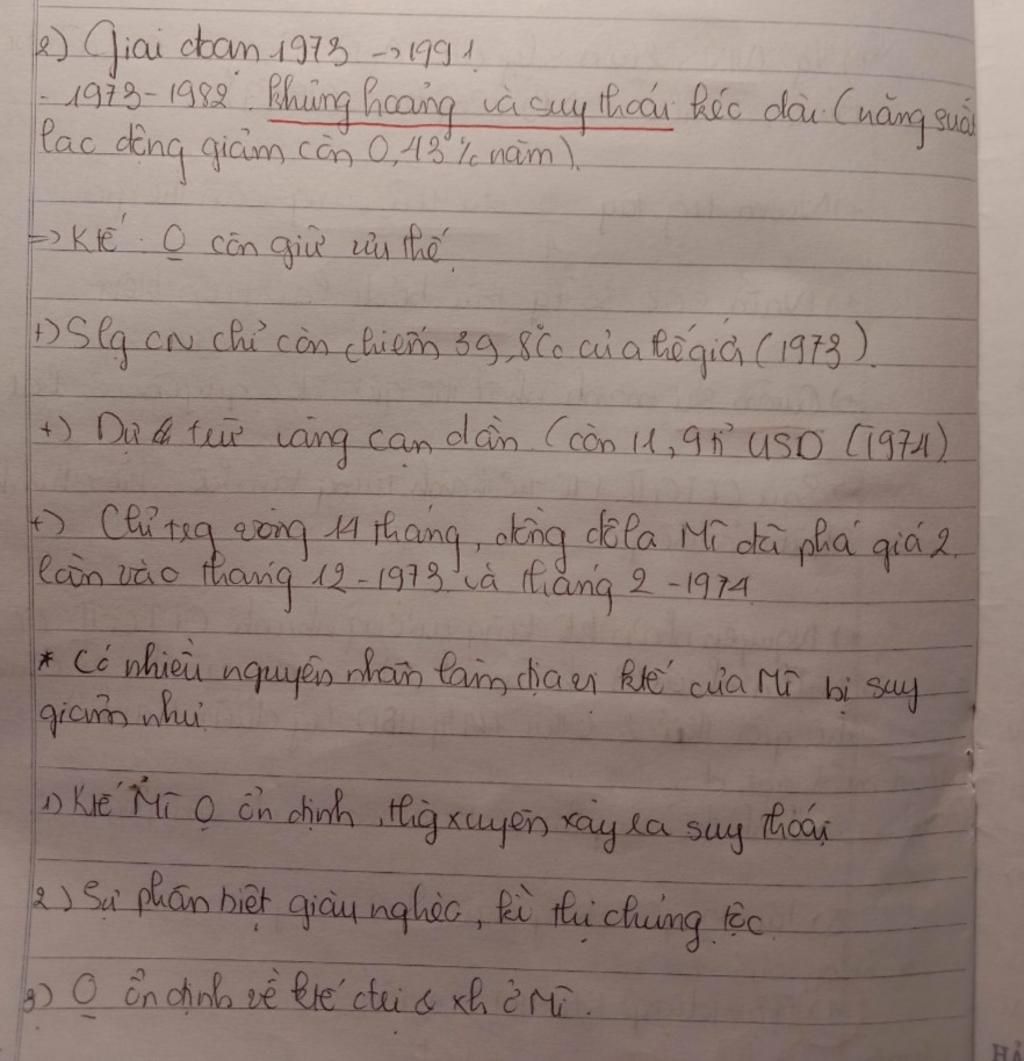 2) Giai đoạn 1973 -> 1991.
- 1973-1982: khủng hoảng và suy thoái kéo dài (năng suất
lao động giảm còn 0,43% năm).
=> Ktế O còn giữ ưu thế.
+) Slg CN chỉ còn chiếm 39,8% của thế giới (1973).
+) Dự trữ vàng cạn dần (còn 11,9 tỉ USD (1974)
+) Chỉ trg vòng 14 tháng, đồng đôla Mĩ đã phá giá 2
lần vào tháng 12-1973 và tháng 2-1974
* Có nhiều nguyên nhân làm địa vị ktế của Mĩ bị suy
giảm như
1) Ktế Mĩ O ổn định, thg xuyên xảy ra suy thoái
2) Sự phân biệt giàu nghèo, kì thị chủng tộc.
3) O ổn định về ktế ctrị & xh ở Mĩ.